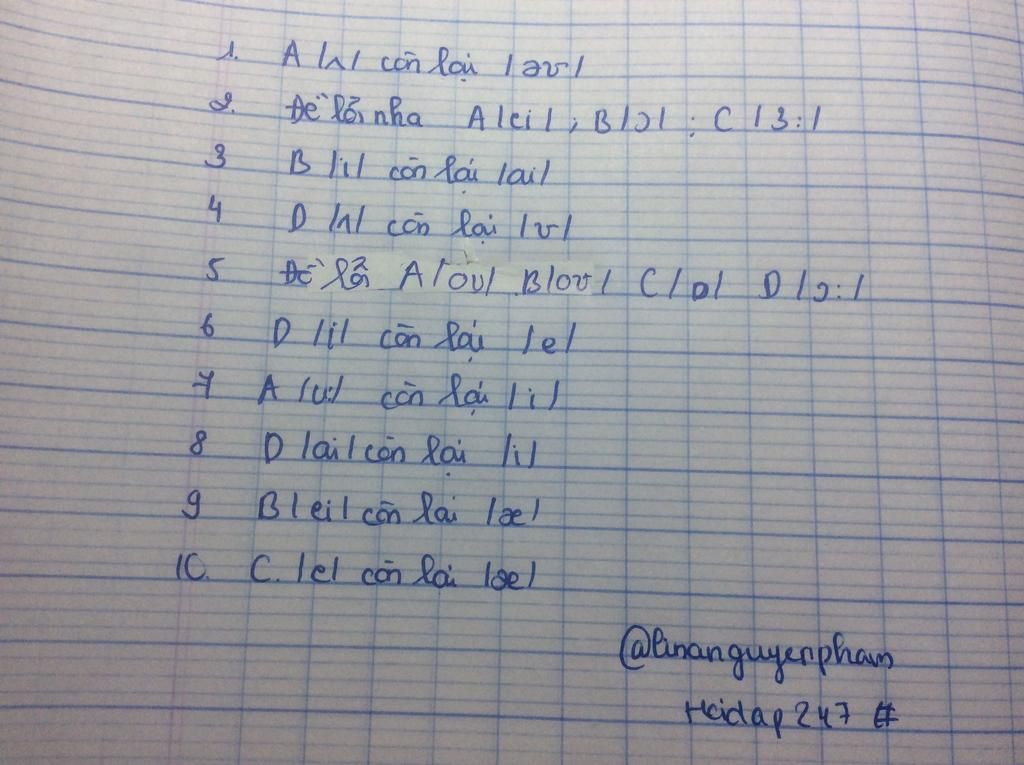 1. A /ʌ/ còn lại /əʊ/
2. Đề lỗi nha A/ei/; B/ɔ/; C /3:/
3 B /i/ còn lại /ai/
4 D /ʌ/ còn lại /ʊ/
5 Đề lỗi A/oʊ/ B/oʊ/ C/ɒ/ D/ɔ:/
6 D /i/ còn lại /e/
7 A /u:/ còn lại /i/
8 D /ai/ còn lại /i/
9 B/ei/ còn lại /æ/
10. C. /e/ còn lại /æ/
@linanguyenpham
Hoidap247 #